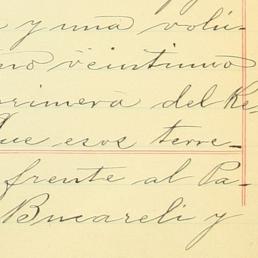 y una volú-
no veintiuno
primera del Re-
que esos terre-
frente al Pa-
Bucareli y